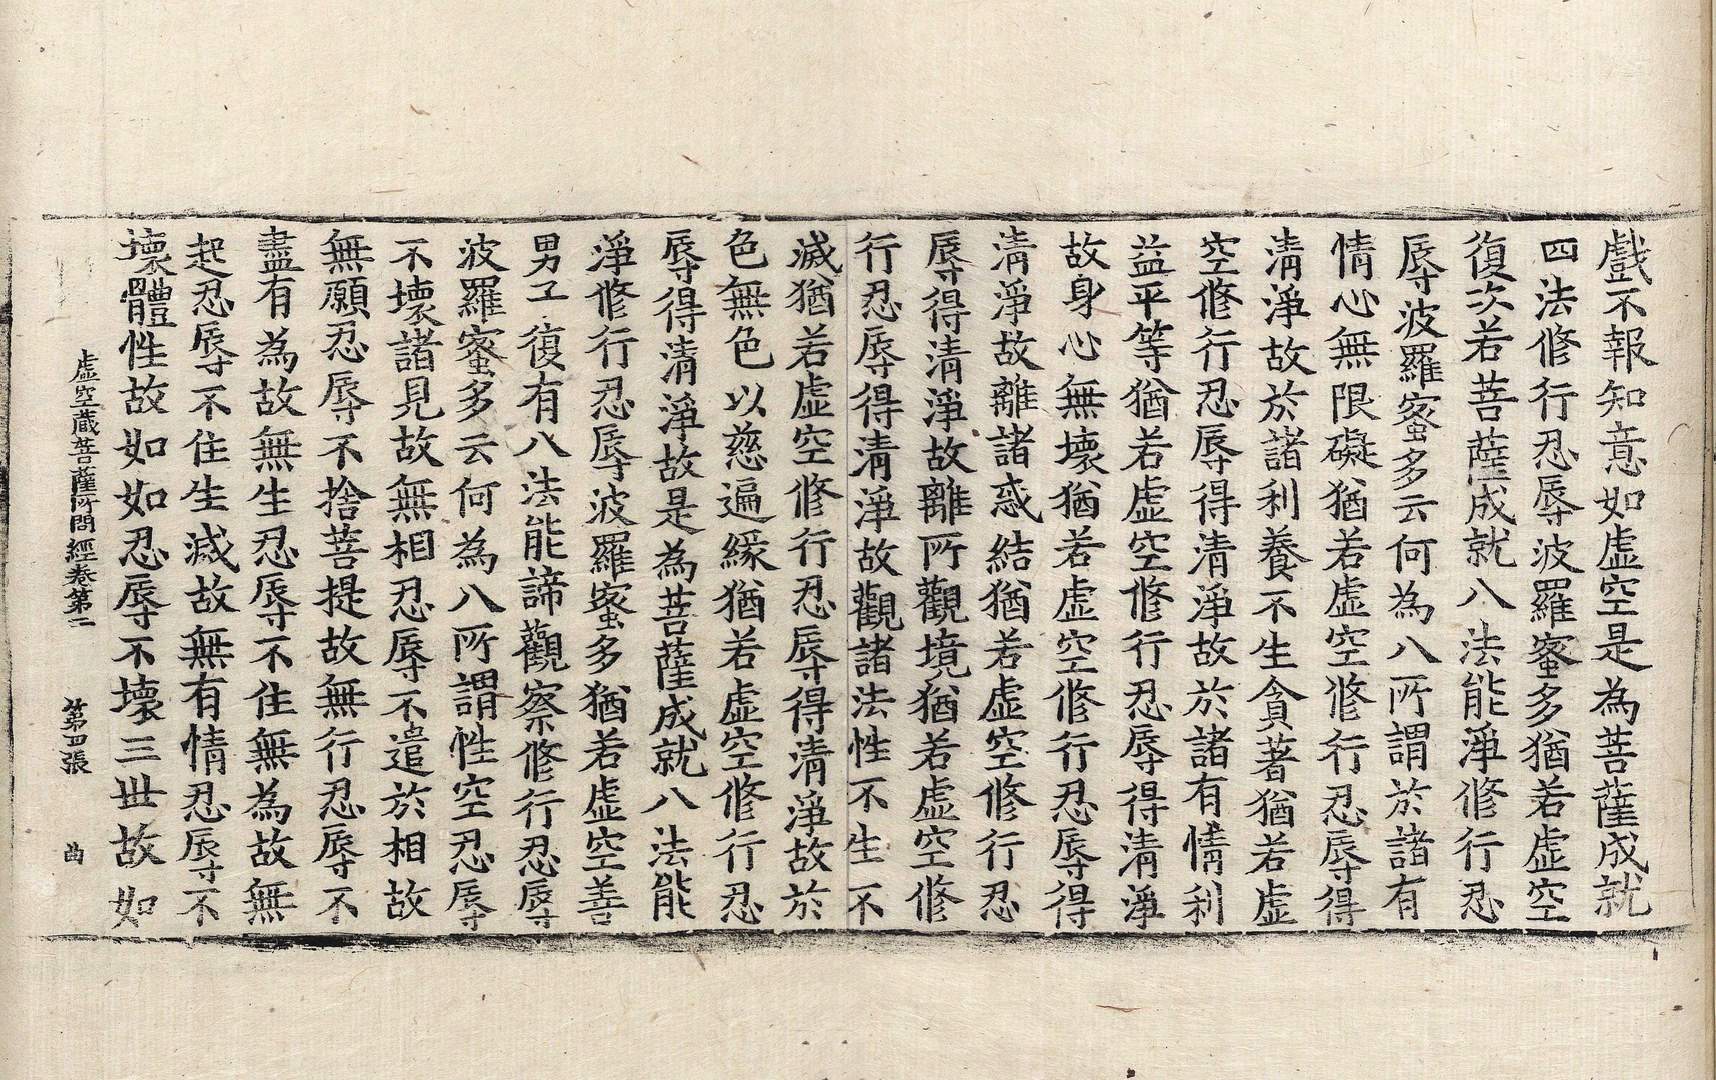 戲不報知意如虛空是為菩薩成就
四法修行忍辱波羅蜜多猶若虛空
復次若菩薩成就八法能淨修行忍
辱波羅蜜多云何為八所謂於諸有
情心無限礙猶若虛空修行忍辱得
清淨故於諸利養不生貪著猶若虛
空修行忍辱得清淨故於諸有情利
益平等猶若虛空修行忍辱得清淨
故身心無壞猶若虛空修行忍辱得
清淨故離諸惑結猶若虛空修行忍
辱得清淨故離所觀境猶若虛空修
行忍辱得清淨故觀諸法性不生不
滅猶若虛空修行忍辱得清淨故於
色無色以慈遍緣猶若虛空修行忍
辱得清淨故是為菩薩成就八法能
淨修行忍辱波羅蜜多猶若虛空善
男子復有八法能諦觀察修行忍辱
波羅蜜多云何為八所謂性空忍辱
不壞諸見故無相忍辱不遣於相故
無願忍辱不捨菩提故無行忍辱不
盡有為故無生忍辱不住無為故無
起忍辱不住生滅故無有情忍辱不
壞體性故如如忍辱不壞三世故如
虛空藏菩薩所問經卷第二 第四張 曲